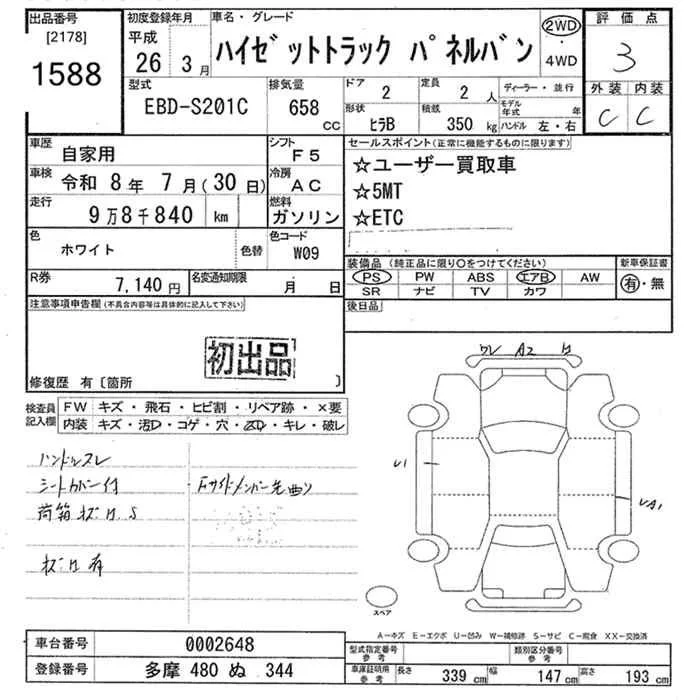 出品番号
[2178]
1588
初度登録年月
平成
26年 3月
車名・グレード
ハイゼットトラック パネルバン
2WD
・
4WD
評価点
3
型式
EBD-S201C
排気量
658
cc
ドア
2
定員
2 人
形状
ヒラB
積載
350 kg
ディーラー・並行
モデル年式 年
ハンドル 左・右
外装 内装
C C
車歴
自家用
シフト
F5
車検
令和 8年 7月(30日)
冷房
AC
走行
9万8千840 km
燃料
ガソリン
色
ホワイト
色替
色コード
W09
R券
7,140円
名変通知期限
月 日
セールスポイント(正常に機能するものに限ります)
☆ユーザー買取車
☆5MT
☆ETC
装備品 (純正品に限り○をつけてください)
PS PW ABS エアB AW
SR ナビ TV カワ
新車保証書
有・無
後日品
注意事項申告欄(不具合内容等は具体的に記入して下さい)
初出品
修復歴 有〔箇所 〕
検査員
記入欄
FW キズ・飛石・ヒビ割・リペア跡・×要
内装 キズ・汚レ・コゲ・穴・スレ・キレ・破レ
ハンドルスレ
シートカバー付
Fサイドメンバー先曲り
荷箱サビ凹S
サビ凹有
ワレ A2
U1
UA1
スペア
A-キズ E-エクボ U-凹み W-補修跡 S-サビ C-腐食 XX-交換済
車台番号
0002648
登録番号
多摩 480 ぬ 344
型式指定番号
参考
類別区分番号
参考
車庫証明用
参考
長さ 339 cm
幅 147 cm
高さ 193 cm